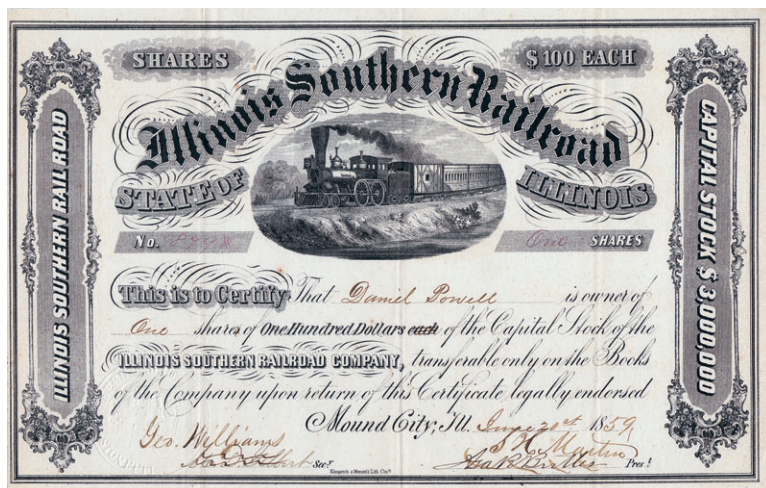 SHARES $100 EACH
Illinois Southern Railroad
STATE OF ILLINOIS
No. One SHARES
ILLINOIS SOUTHERN RAILROAD
CAPITAL STOCK $3,000,000
This is to Certify That Daniel Powell is owner of
One share of One Hundred Dollars each of the Capital Stock of the
ILLINOIS SOUTHERN RAILROAD COMPANY, transferable only on the Books
of the Company upon return of this Certificate legally endorsed
Mound City, Ill. June 1859
Geo. Williams Martin
Secy. Prest.